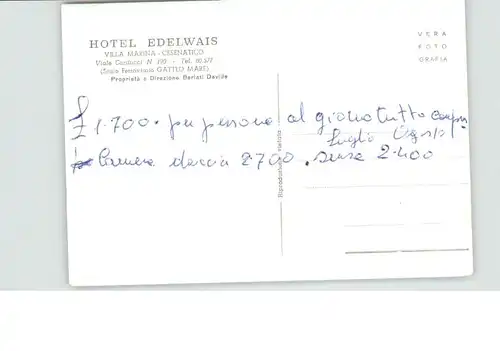 HOTEL EDELWAIS
VILLA MARINA - CESENATICO
Viale Carducci N. - Tel.
(Scalo Ferroviario GATTEO MARE)
Proprietà e Direzione Bariati Davide
VERA
FOTO
GRAFIA
£ 1.700. per persona al giorno tutto
Luglio Agosto
camera doccia 2700. senza 2.400